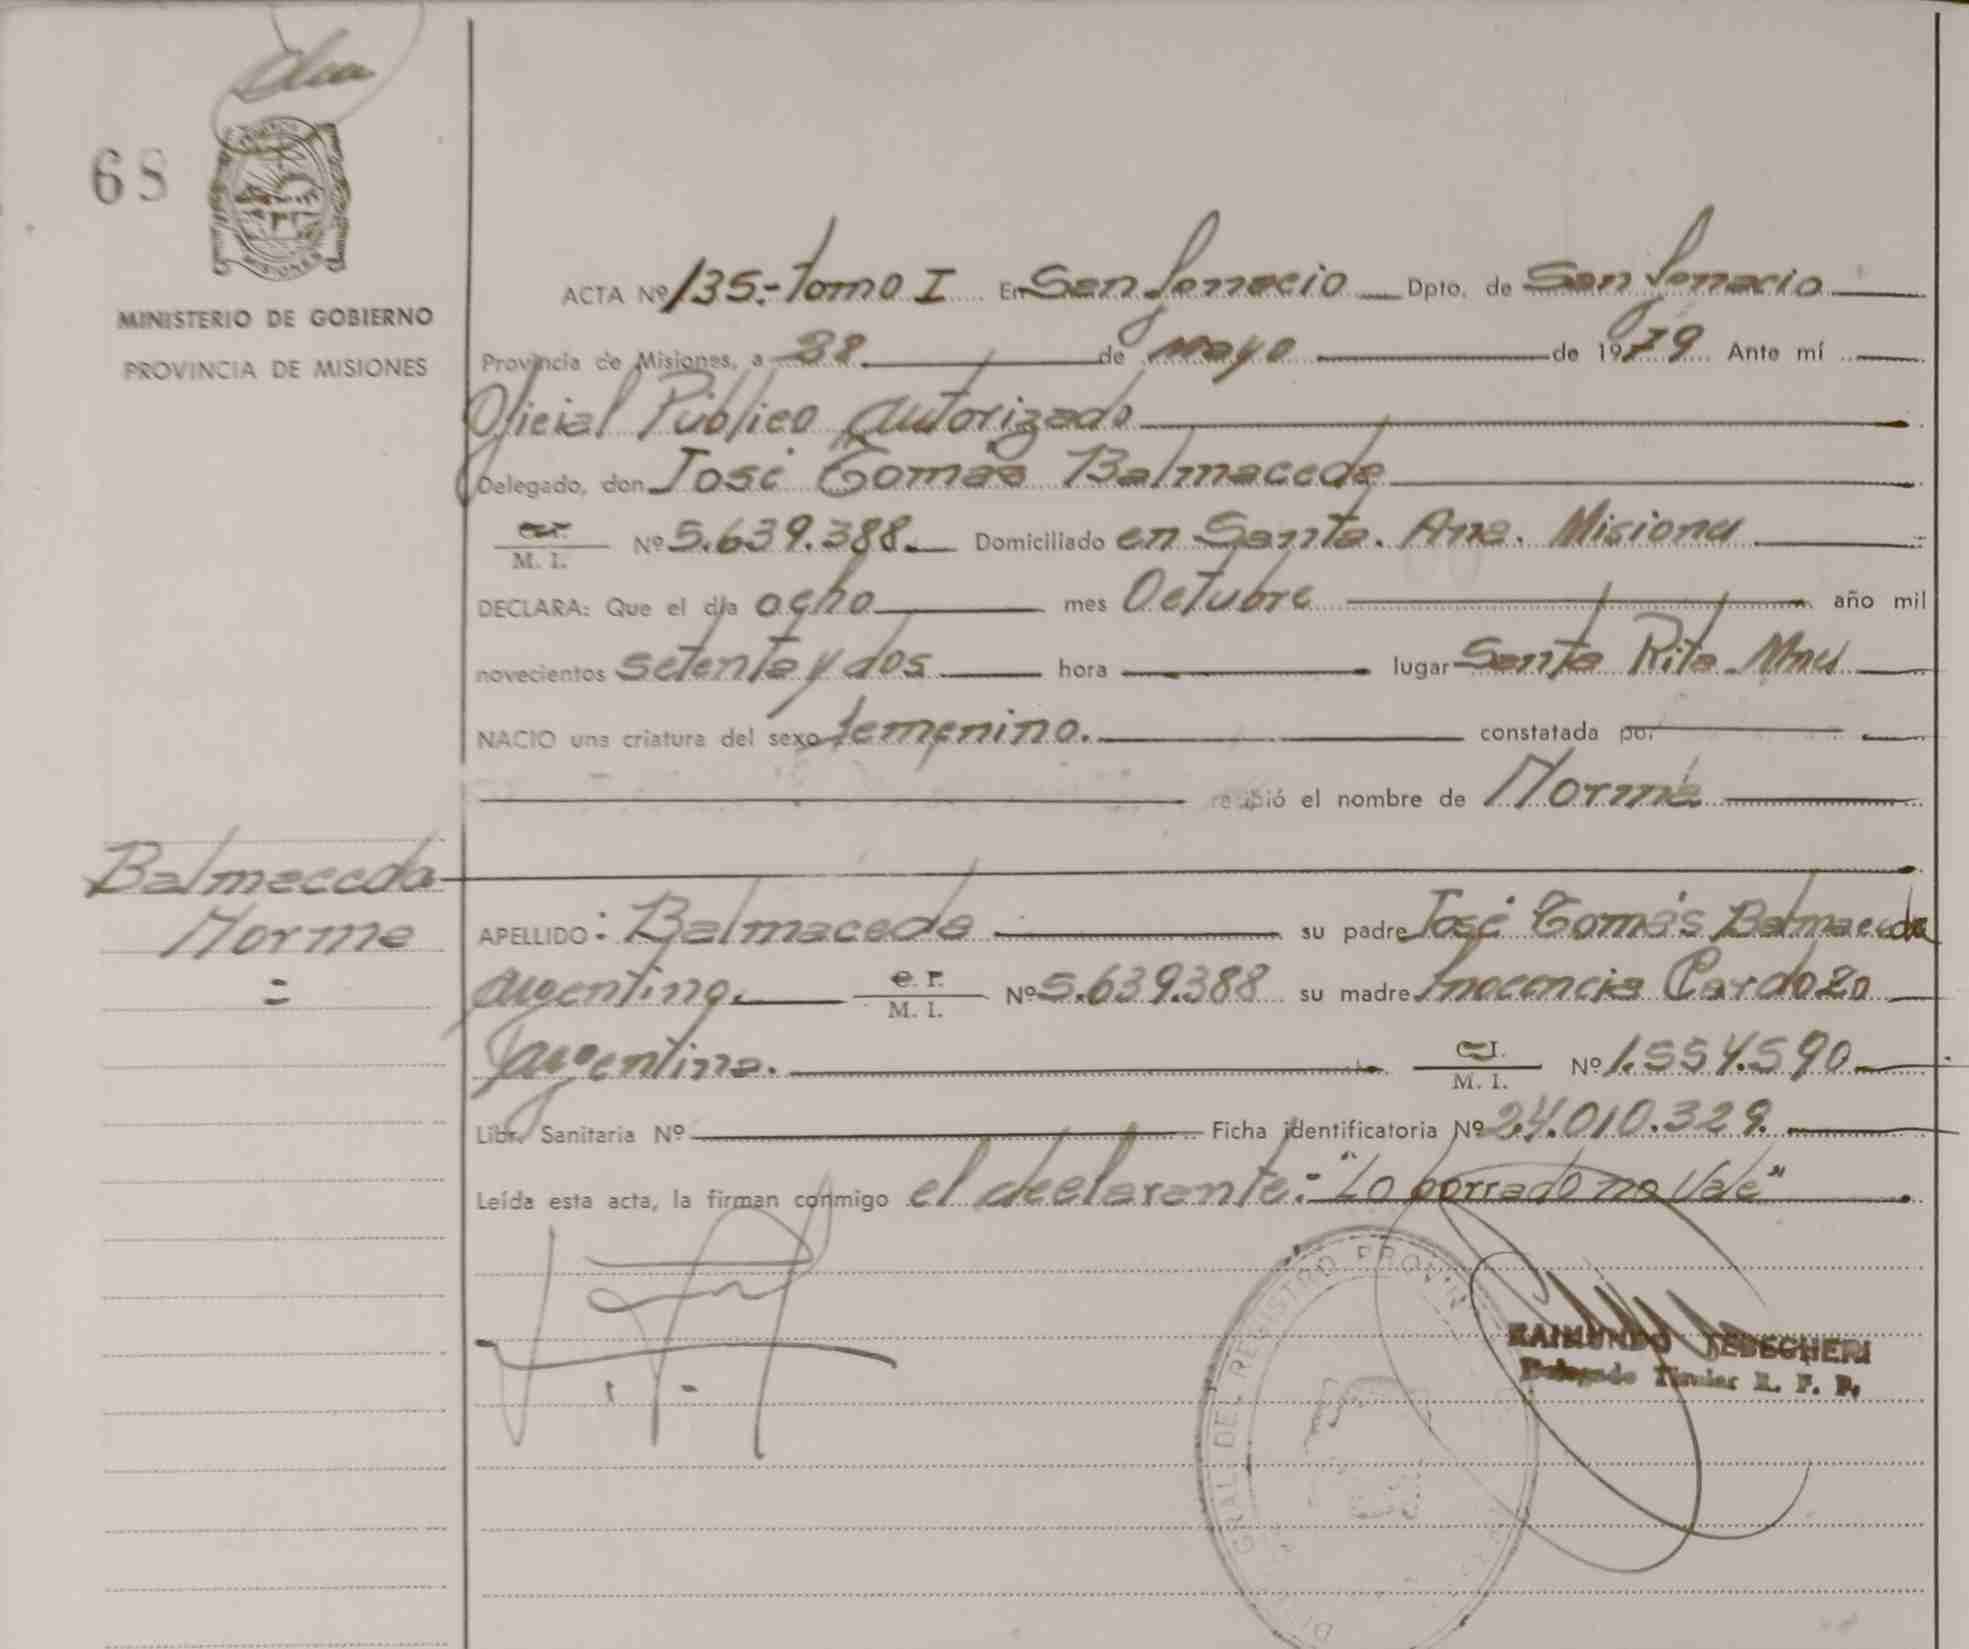 68
MISIONES
MINISTERIO DE GOBIERNO
PROVINCIA DE MISIONES
ACTA Nº 135.- Tomo I En San Ignacio Dpto. de San Ignacio
Provincia de Misiones, a 28 de Mayo de 1979 Ante mí
Oficial Público Autorizado
Delegado, don José Tomás Balmaceda
M. I. Nº 5.639.388. Domiciliado en Santa. Ana. Misiones
DECLARA: Que el día ocho mes Octubre año mil
novecientos setenta y dos hora lugar Santa Rita Mnes
NACIO una criatura del sexo femenino. constatada por
recibió el nombre de Norma
Balmaceda
Norma
=
APELLIDO: Balmaceda su padre José Tomás Balmaceda
argentino. C. I. M. I. Nº 5.639.388 su madre Inocencia Cardozo
argentina. C. I. M. I. Nº 1.554.590
Libr. Sanitaria Nº Ficha identificatoria Nº 24.010.329.
Leída esta acta, la firman conmigo el declarante.- "Lo borrado no Vale"
GRAL. DEL REGISTRO PROVIN
RAIMUNDO TEDEGHERI
Delegado Titular R. P. P.